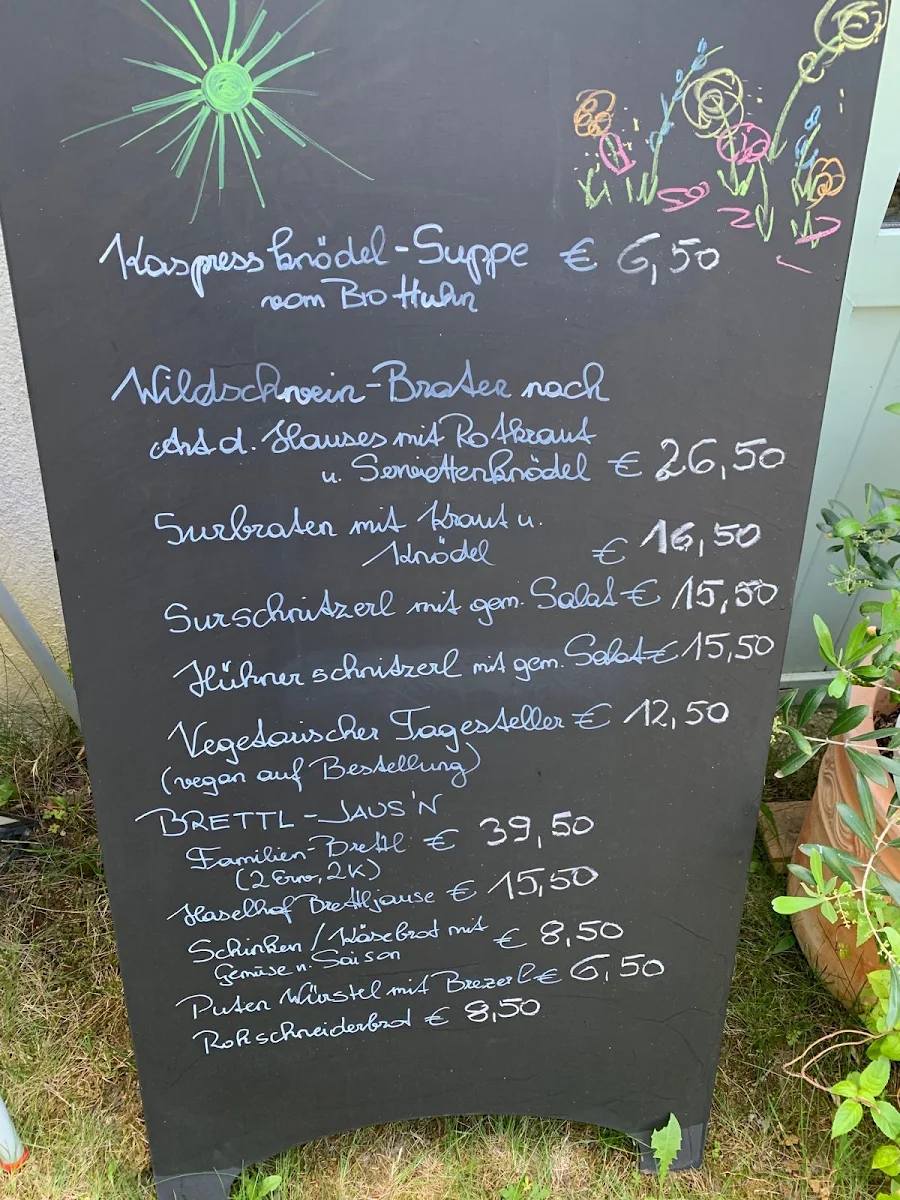 Kaspressknödel-Suppe € 6,50
vom Bio Huhn
Wildschwein-Braten nach
Art d. Hauses mit Rotkraut
u. Serviettenknödel € 26,50
Surbraten mit Kraut u.
Knödel € 16,50
Surschnitzerl mit gem. Salat € 15,50
Hühnerschnitzerl mit gem. Salat € 15,50
Vegetarischer Tagesteller € 12,50
(vegan auf Bestellung)
BRETTL-JAUS'N
Familien-Brettl € 39,50
(2 Erw, 2 K)
Haselhof Brettljause € 15,50
Schinken/Käsebrot mit € 8,50
Gemüse n. Saison
Puten Würstel mit Brezerl € 6,50
Rohschneiderbrot € 8,50